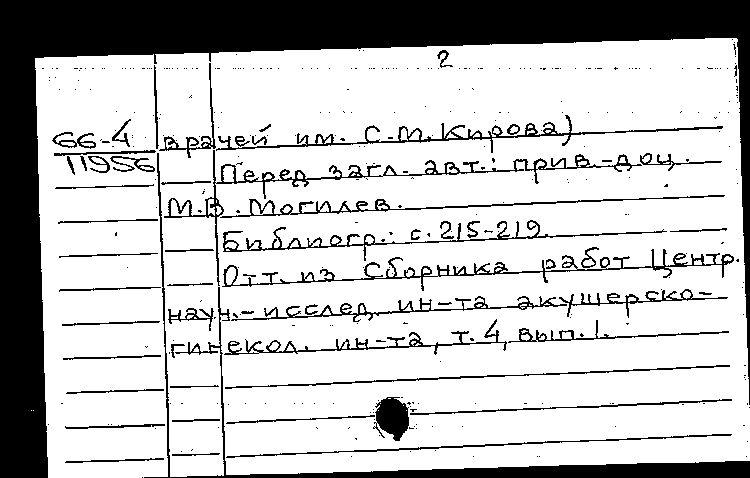 2
66-4 врачей им. С.М. Кирова)
11956 Перед загл. авт.: прив.-доц.
М.В. Могилев.
Библиогр.: с. 215-219.
Отт. из Сборника работ Центр.
науч.-исслед. ин-та акушерско-
гинекол. ин-та, т. 4, вып. 1.